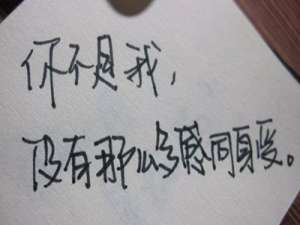 你不是我，
没有那么多感同身受。